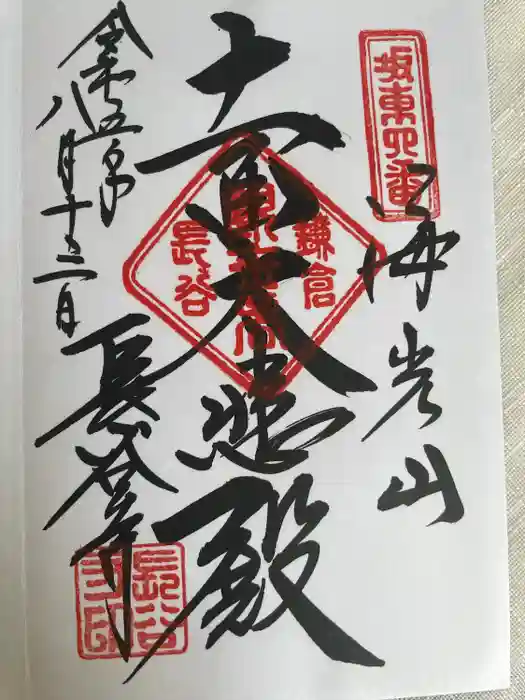 坂東四番
海光山
十一面大悲殿
鎌倉
長谷
令和五年
八月十三日
長谷寺
長谷
寺印